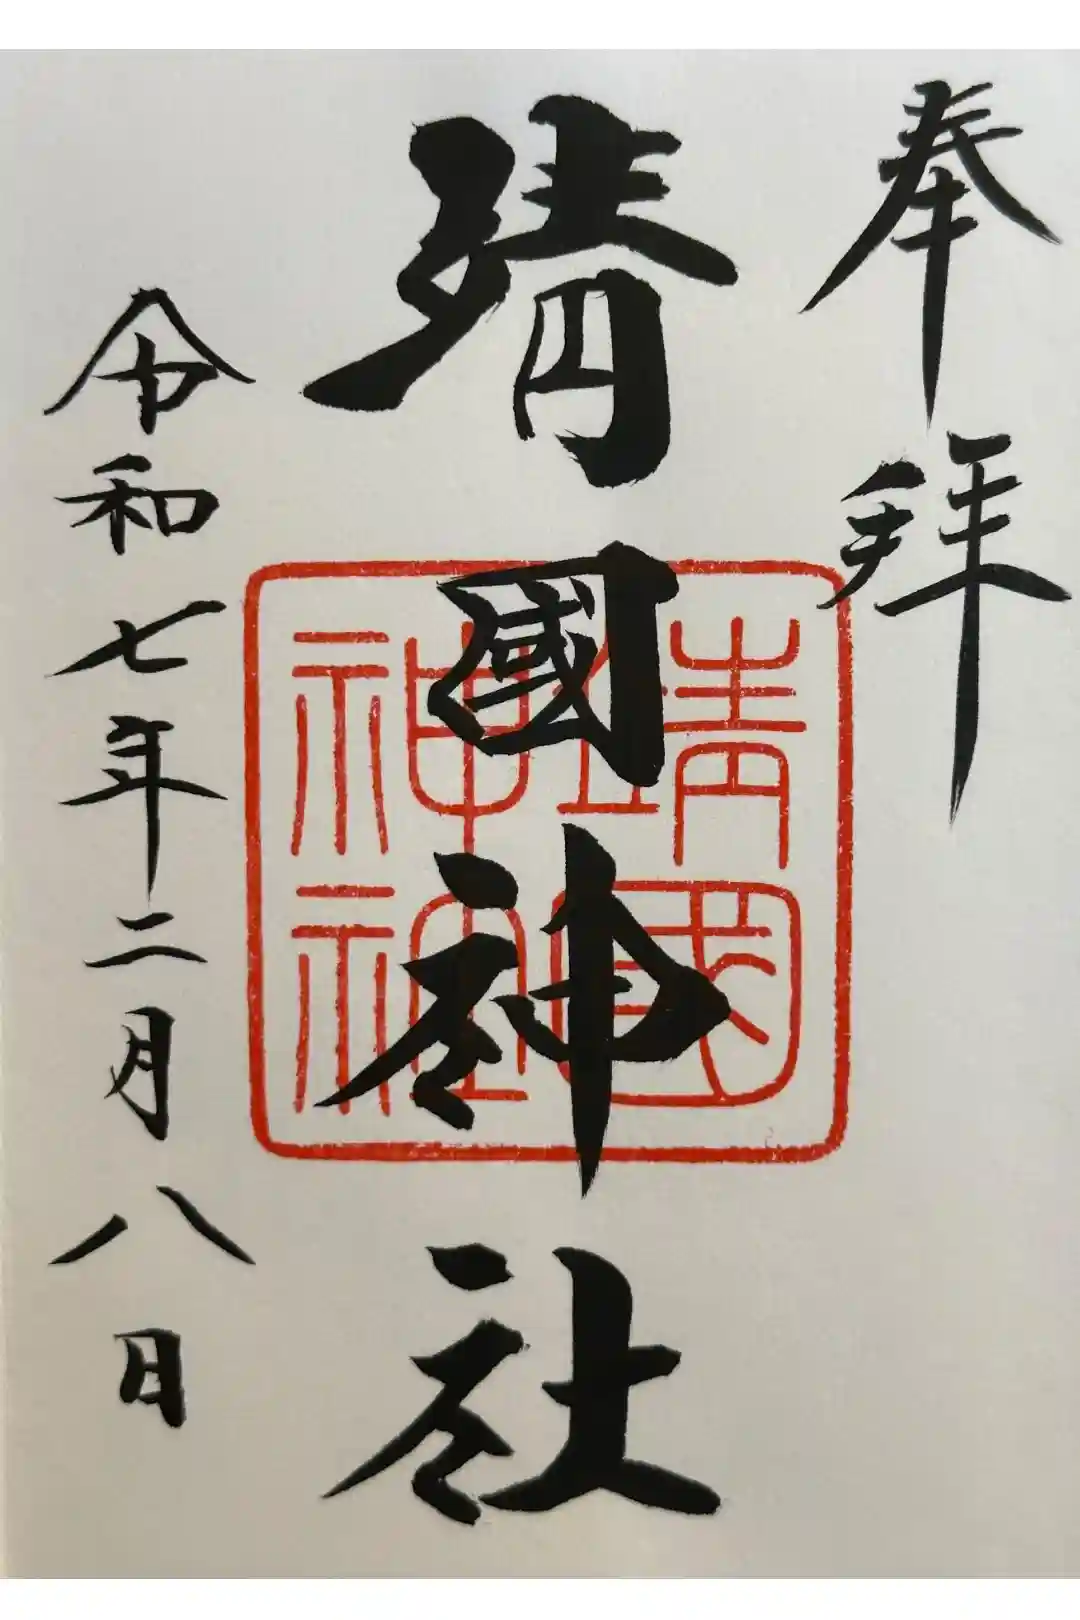 奉拜
靖國神社
靖國
神社
令和七年二月八日